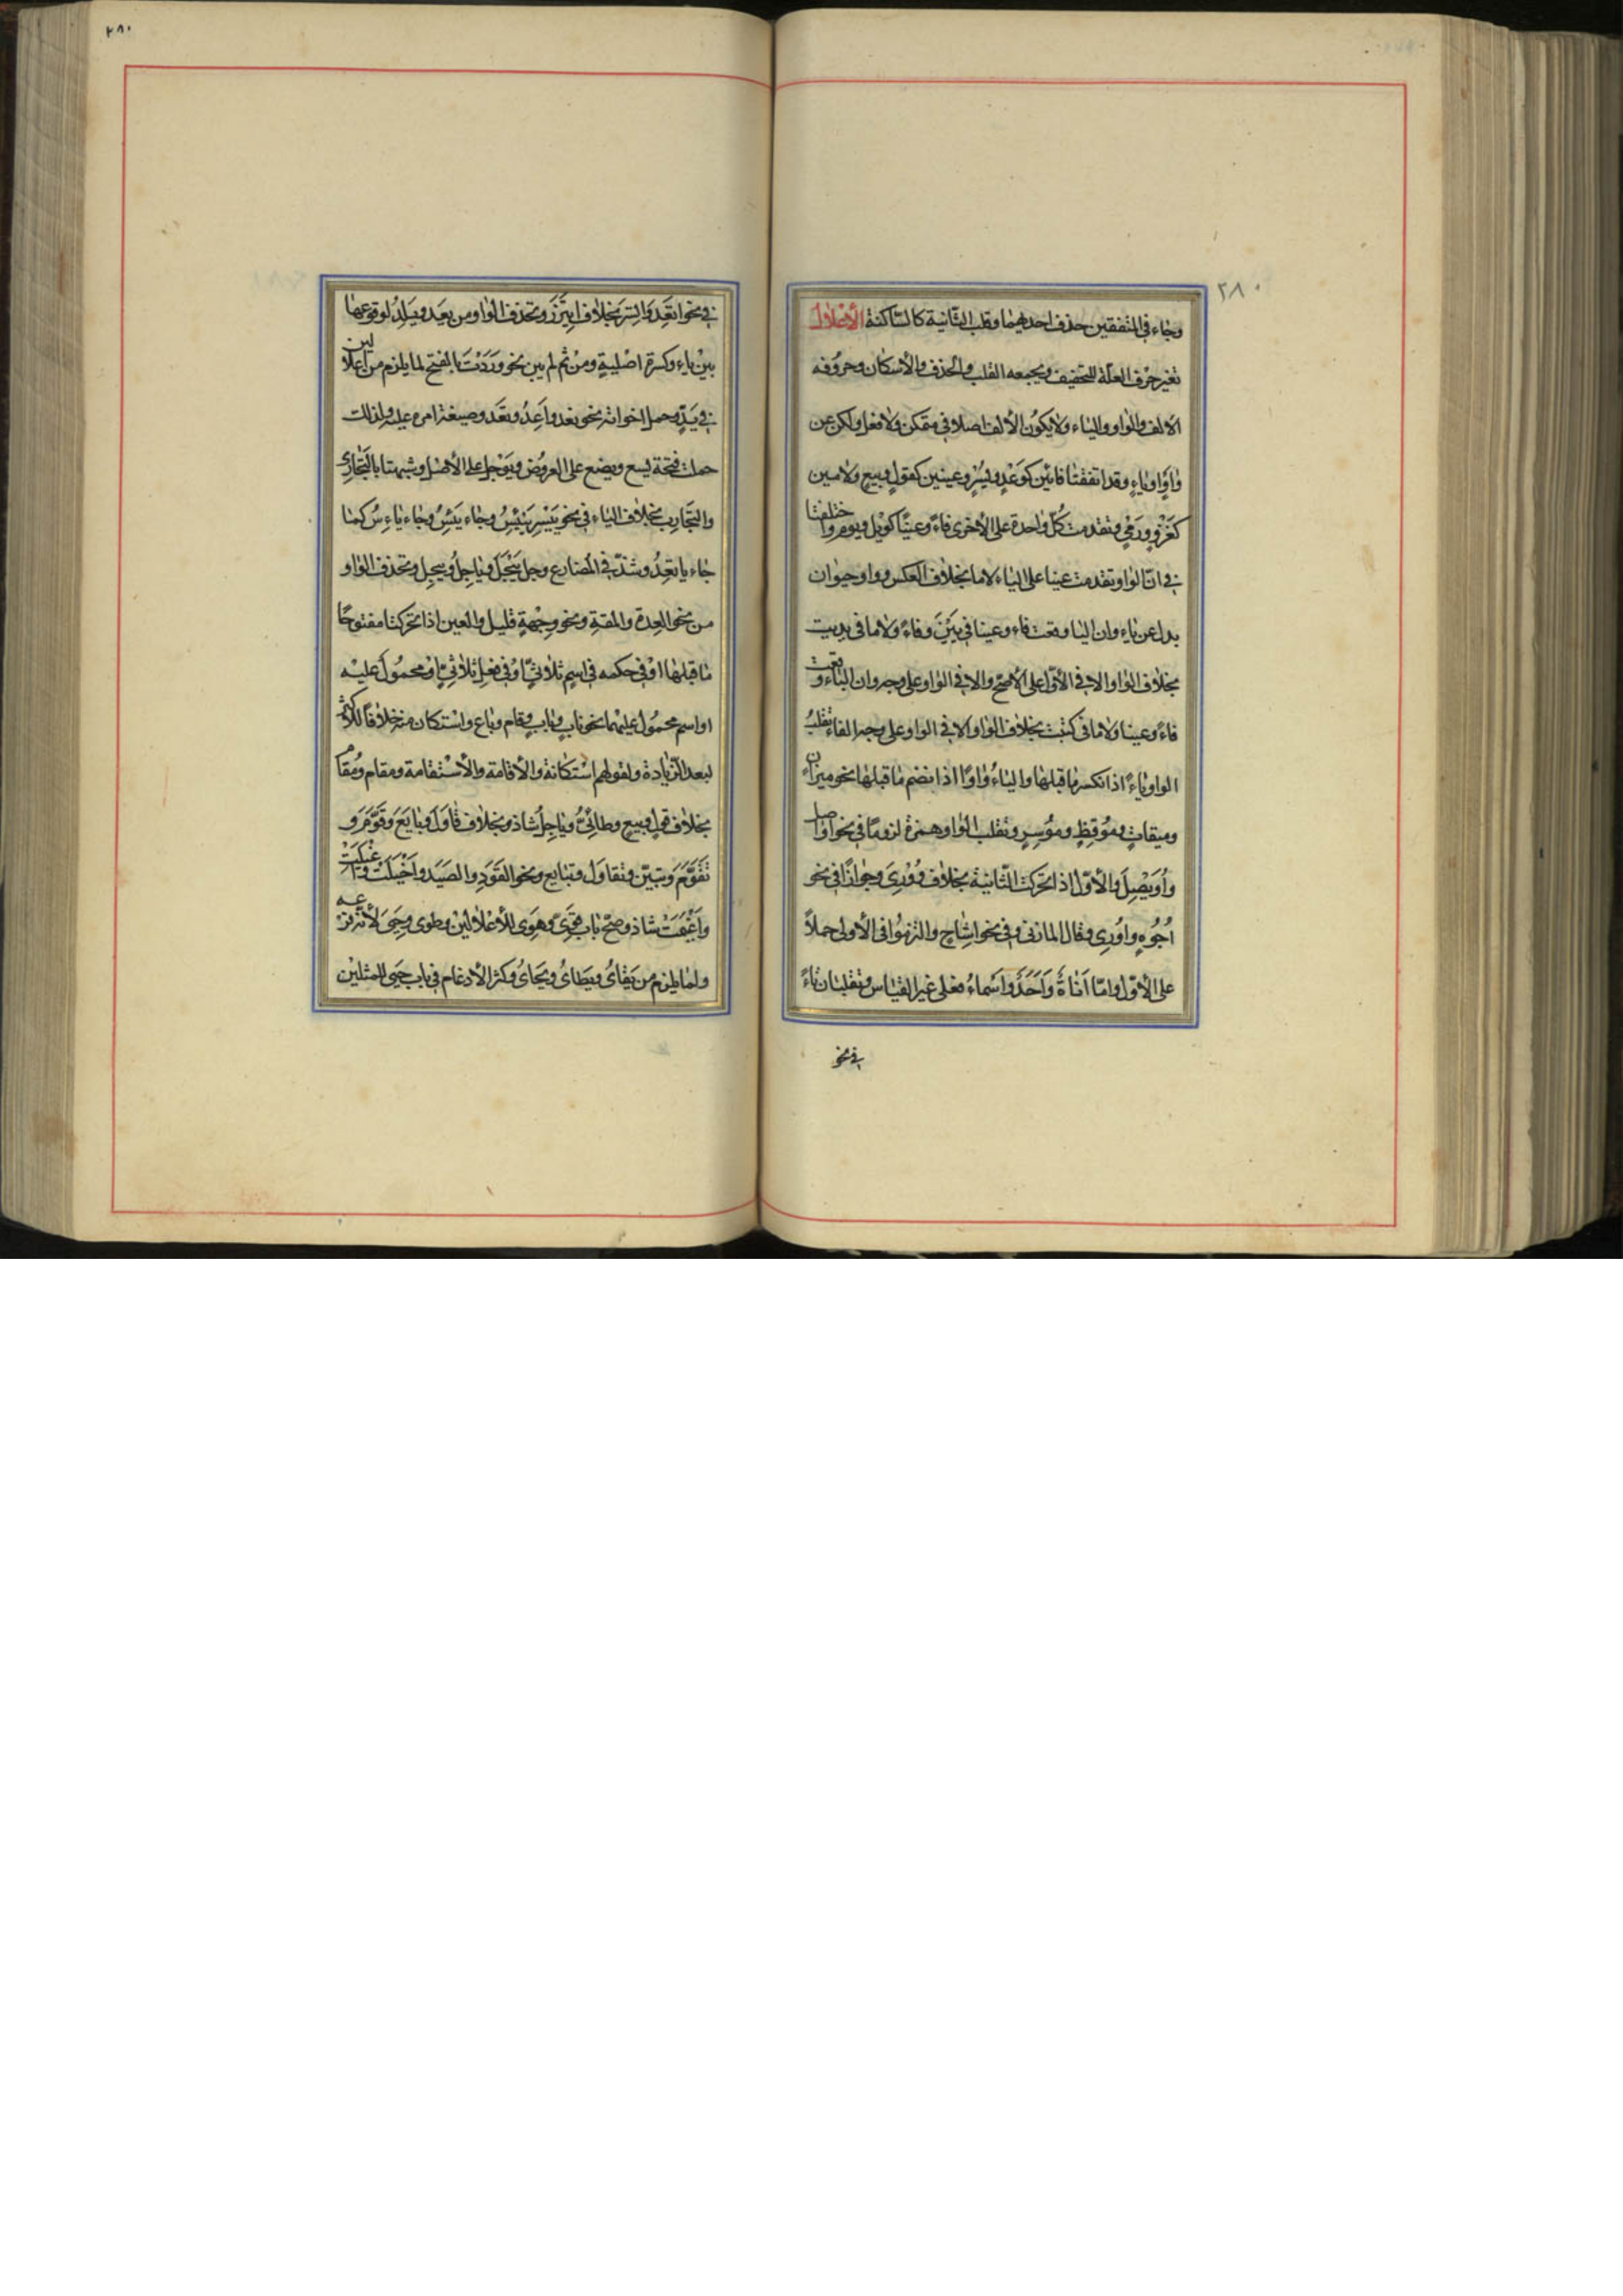 ٢٨٠
وجاء في المتفقين حذف احديهما وقلب الثانية كالساكنة الأعلال
تغير حرف العلة للتخفيف ويجمعه القلب والحذف والأسكان وحروفه
الالف والواو والياء ولا يكون الألف اصلا في متمكن ولا فعل ولكن عن
واو او ياء وقد اتفقتا فائين كوعد ويسر وعينين كقول وبيع ولامين
كغزو ورمي وتقدمت كل واحدة على الأخرى فاءً وعيناً كويل ويوم واختلفتا
في ان الواو تقدمت عينا على الياء لاما بخلاف العكس وواو حيوان
بدل عن ياء وان اليا وقعت فاء وعينا في يَيَنٍ وفاءً ولاما في يديت
بخلاف الواو الا في الأول على الأصح والا في الواو على وجه وان الياء وقعت
فاءً وعينا ولاما في كتبت بخلاف الواو الا في الواو على وجه الفاء تقلب
الواو ياءً اذا انكسر ما قبلها والياءُ واوًا اذا انضم ما قبلها نحو ميزان
وميقات وموقظٍ وموسرٍ وتقلب الواو همزة لزوماً في نحو اواصل
وأُوَيْصِلَ والأول اذا تحركت الثانية بخلاف وُوْرِيَ وجوازًا في نحو
اُجُوهٍ واُوْرِي وقال المازني وفي نحو اشاح والتزموا في الأولى حملاً
على الأول واما اَناةً وَاَحَدٌ واَسْماءُ فعلى غير القياس وتقلبان تاءً
في نحو
٢٨٠
في نحو اتَّعَدَ واتَّسَرَ بخلاف ايتزر وتحذف الواو من يعد ويلد لوقوعها
بين ياء وكسرة اصلية ومن ثم لم يبن نحو وددت بالفتح لما يلزم من اعلالين
في يدّ وحمل اخواته نحو نعد واعد وتعد وصيغة امره عليه ولذلك
حملت فتحة يسع ويضع على العروض ويوجل على الأصل وشبهتا بالتجاري
والتجارب بخلاف الياء في نحو ييسر ييئس وجاء يئس وجاء ياءس كما
جاء ياتعد وشذ في المضارع وجل ييجل وياجل وييجل وتحذف الواو
من نحو العدة والمقة ونحو وجهة قليل والعين اذا تحركتا مفتوحًا
ما قبلها او في حكمه في اسم ثلاثي او في فعل ثلاثي او محمول عليه
او اسم محمول عليهما نحو ناب وباب وقام وباع واستكان منه خلافاً للأكثر
لبعد الزيادة ولقولهم استكانة والأقامة والأستقامة ومقام ومُقام
بخلاف قول وبيع وطائيٌّ وياجل شاذ وبخلاف قاول وبايع وقوم و
تقوم وتبين وتقاول وتبايع ونحو القود والصيد واخيلت واغيلت
واغيمت شاذ وصح باب قوي وهوى للأعلالين وطوى وحيي لأنه فرعه
ولما يلزم من يقايُ ويطايُ ويحايُ وكثر الأدغام في باب حيي للمثلين